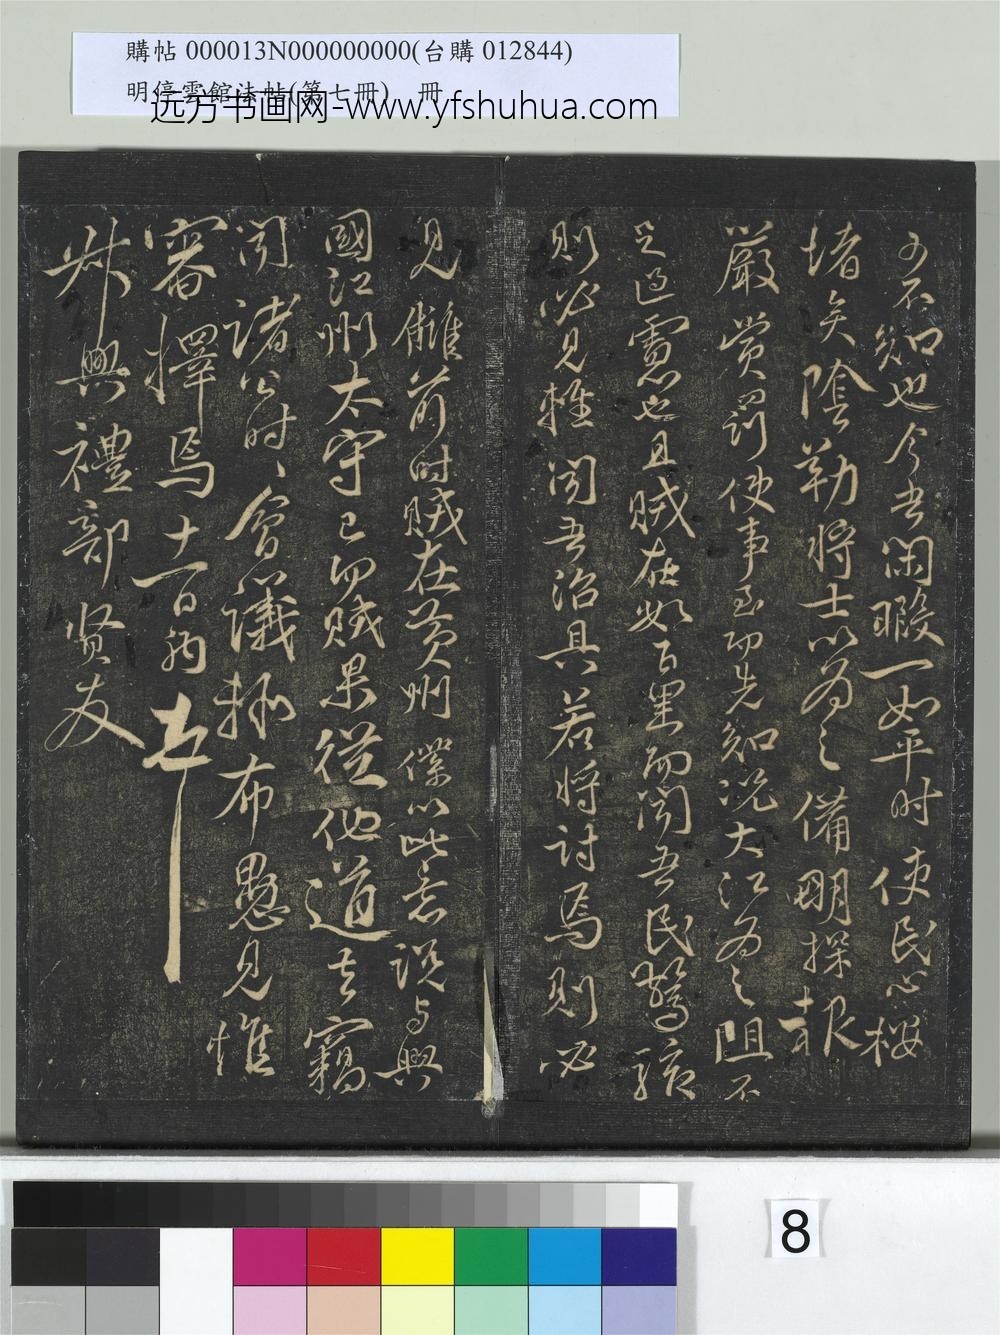 購帖 000013N000000000(台購 012844)
明停雲館法帖(第七冊) 冊
远方书画网-www.yfshuhua.com
不知也今吾閑暇一如平时使民心
堵矣陰勒將士以為之備明探報
嚴赏罰使事至即先知况大江為之阻不
之過慮也且賊在如百里而聞吾民驚
則必見 聞吾治具若將討焉則必
見 前时賊在黄州僕以此意説与興
國江州太守已而賊果從他道去竊
聞諸公时〻會議 布愚見惟
審擇焉十一日
州興禮部贤友
8